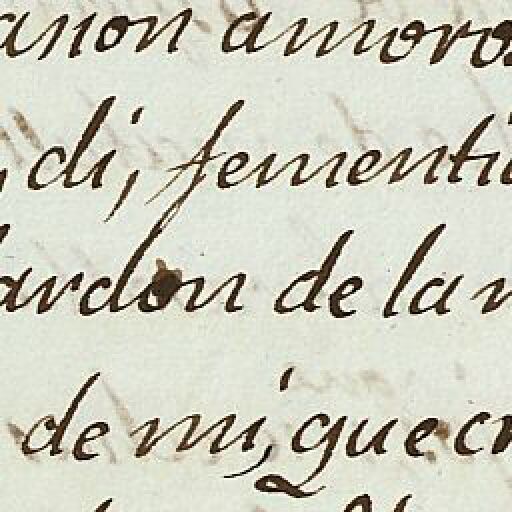 asion amoros
, di, fementi
lardon de la m
de mi, que cr